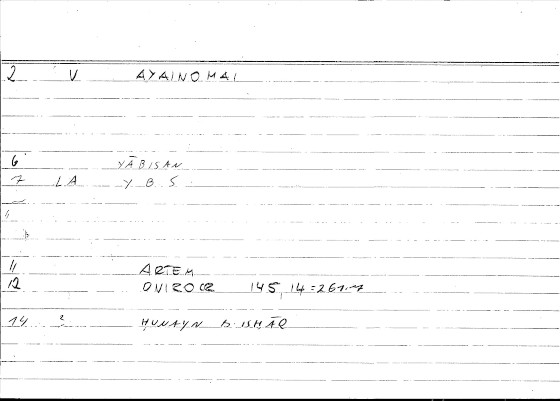 2 V AYAINOMAI
6 YĀBISAN
7 LA Y B S
11 ARTEM
12 ONIROCR 145, 14 = 261.7
14 2 ḤUNAYN B. ISḤĀQ